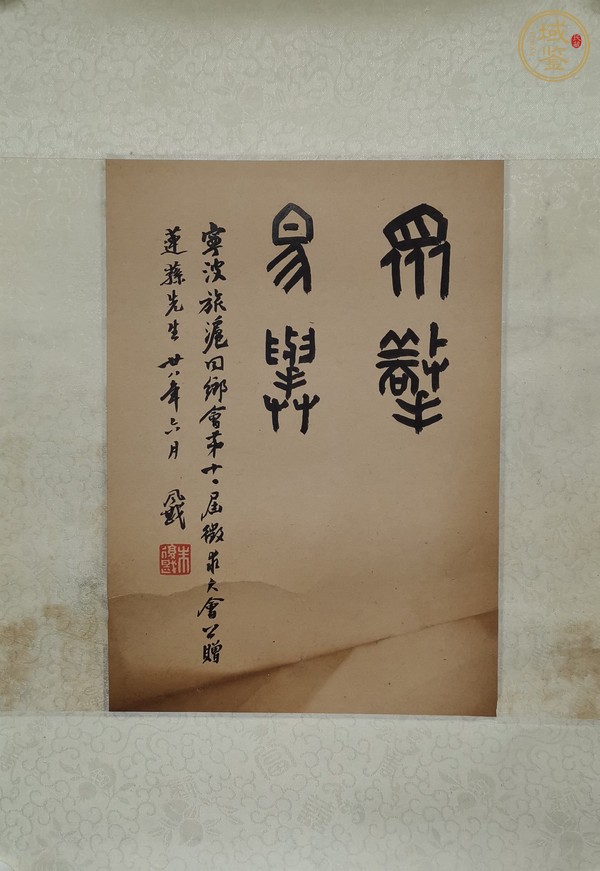 眾擎
易舉
寧波旅滬同鄉會第十一屆徵求大會公贈
蓮蓀先生 廿八年六月
朱復戡
域鉴